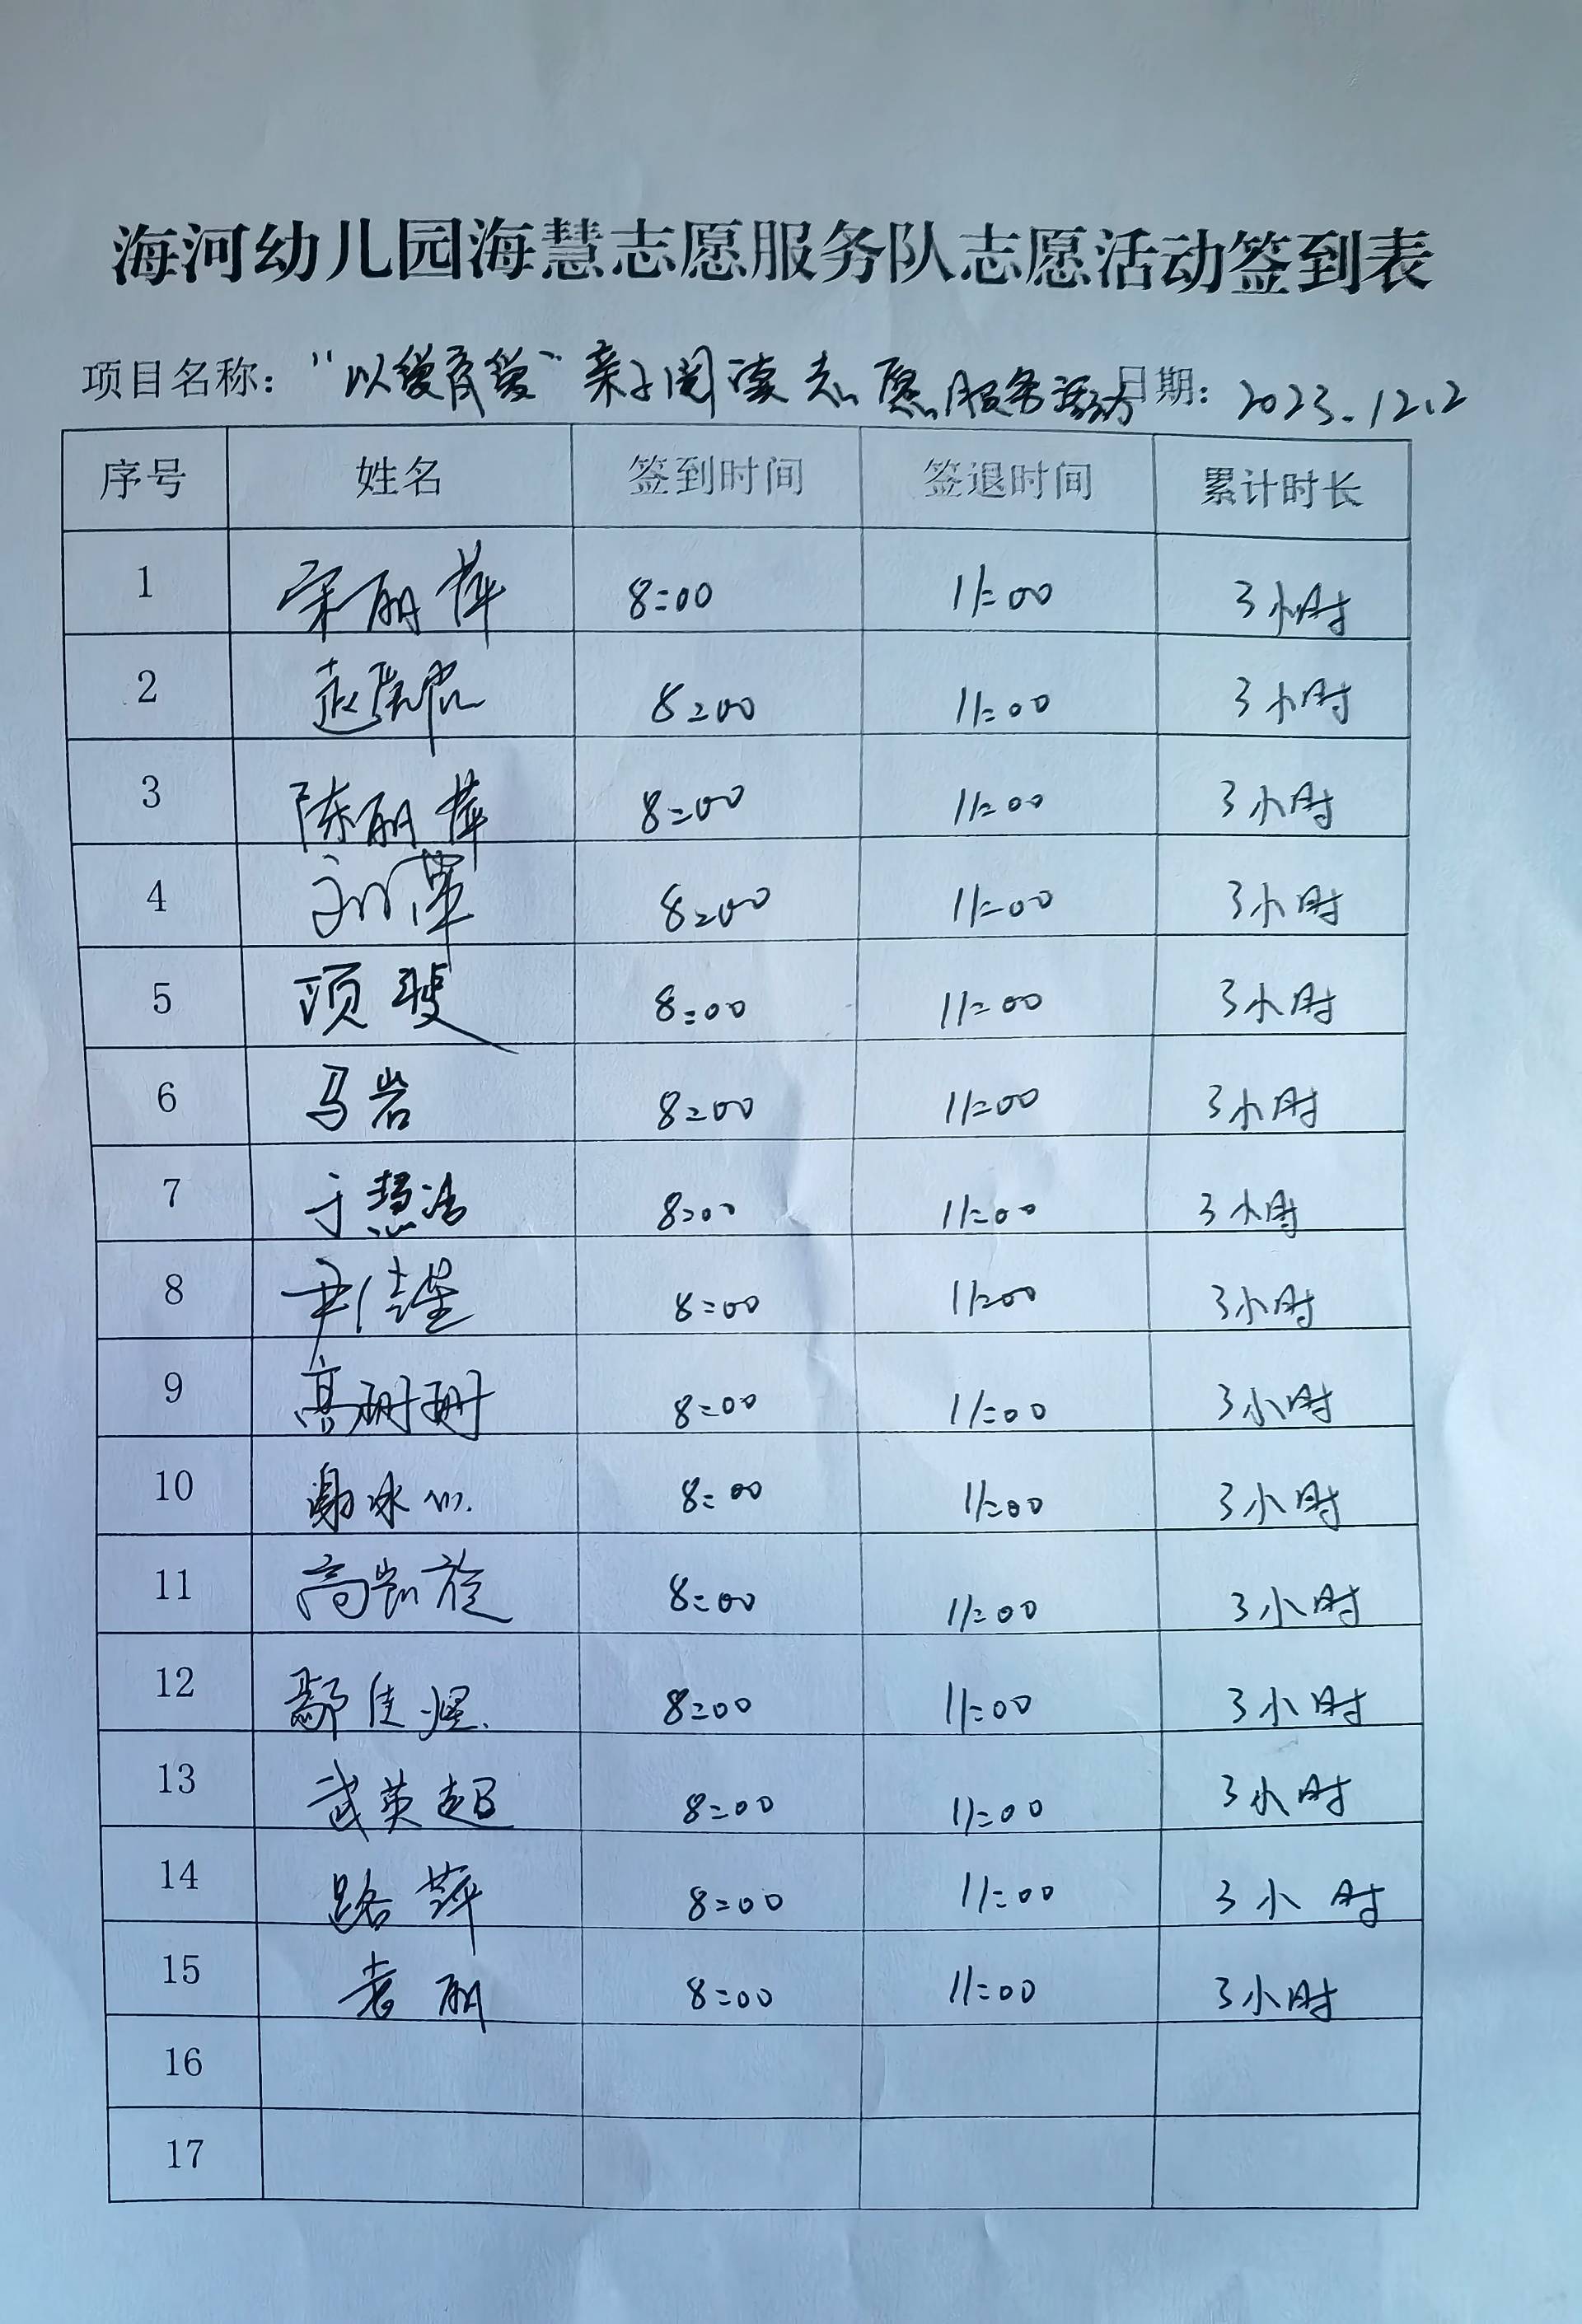 海河幼儿园海慧志愿服务队志愿活动签到表
项目名称："以爱育爱"亲子阅读志愿服务活动 日期：2023.12.2
序号 姓名 签到时间 签退时间 累计时长
1 宋丽萍 8:00 11:00 3小时
2 赵 8:00 11:00 3小时
3 陈丽萍 8:00 11:00 3小时
4 刘 8:00 11:00 3小时
5 项 8:00 11:00 3小时
6 马岩 8:00 11:00 3小时
7 于慧洁 8:00 11:00 3小时
8 尹佳星 8:00 11:00 3小时
9 高珊珊 8:00 11:00 3小时
10 谢冰心 8:00 11:00 3小时
11 高凯旋 8:00 11:00 3小时
12 鄢佳煜 8:00 11:00 3小时
13 武英超 8:00 11:00 3小时
14 路萍 8:00 11:00 3小时
15 袁丽 8:00 11:00 3小时
16
17